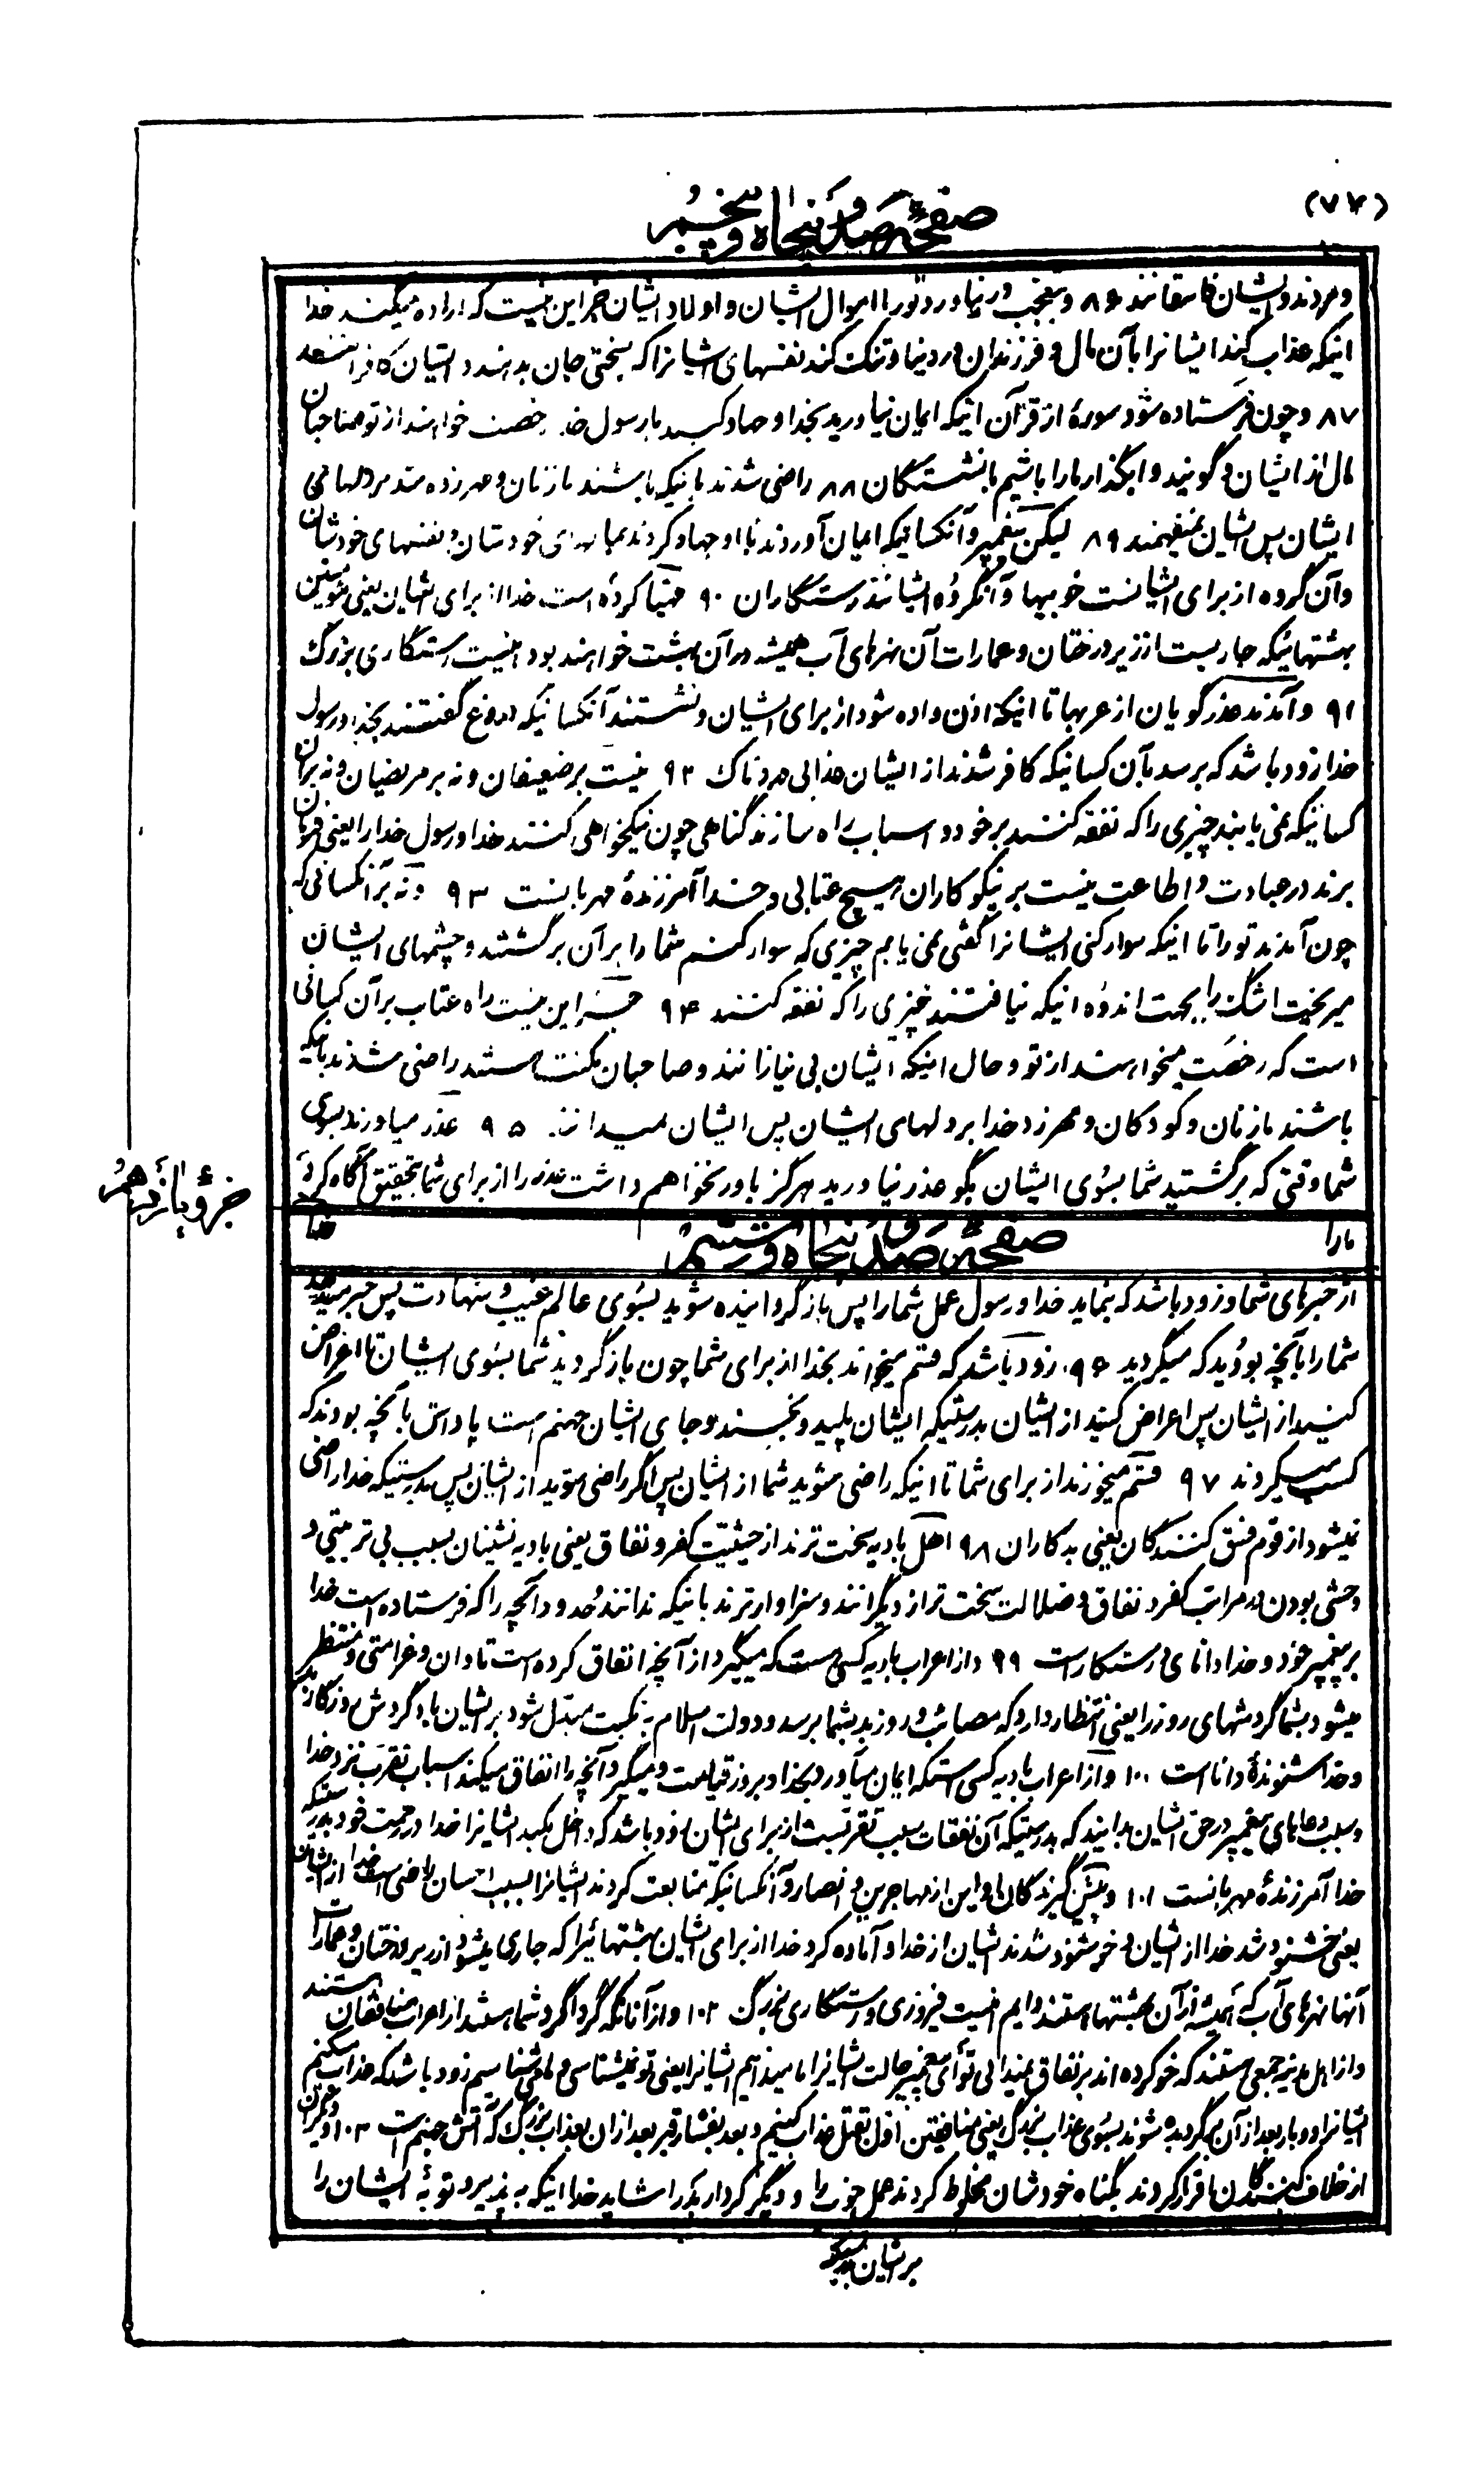 (۷۷)
صفحهٔ صد و پنجاه و پنجم
و مردند و ایشان فاسقانند ۸۶ و بعجب در نیاورد تو را اموال ایشان و اولاد ایشان جز این نیست که اراده میکند خدا
اینکه عذاب کند ایشانرا بآن مال و فرزندان در دنیا و تنگ کند نفسهای ایشانرا که بسختی جان بدهند و ایشان کافرانند
۸۷ و چون فرستاده شود سورهٔ از قرآن اینکه ایمان نیاورید بخدا و جهاد کنید با رسول خدا رخصت خواهند از تو صاحبان
مال از ایشان و گویند وابگذار ما را باشیم با نشستگان ۸۸ راضی شدند باینکه باشند با زنان و مهر زده شد بر دلهای
ایشان پس ایشان نمیفهمند ۸۹ لیکن پیغمبر و آنکسانیکه ایمان آوردند با او جهاد کردند بمالهای خودشان و نفسهای خودشان
و آن گروه از برای ایشانست خوبیها و آنگروه ایشانند رستگاران ۹۰ مهیا کرده است خدا از برای ایشان یعنی مؤمنین
بهشتهائیکه جاریست از زیر درختان و عمارات آن نهرهای آب همیشه در آن بهشت خواهند بود اینست رستگاری بزرگ
۹۱ و آمدند عذر گویان از عربها تا اینکه اذن داده شود از برای ایشان و نشستند آنکسانیکه دروغ گفتند بخدا و رسول
خدا زود باشد که برسد بآن کسانیکه کافر شدند از ایشان عذابی دردناک ۹۲ نیست بر ضعیفان و نه بر مریضان و نه بر آن
کسانیکه نمی یابند چیزی را که نفقه کنند بر خود و اسباب راه سازند گناهی چون نیکخواهی کنند خدا و رسول خدا را یعنی فرمان
برند در عبادت و اطاعت نیست بر نیکوکاران هیچ عتابی و خدا آمرزندهٔ مهربانست ۹۳ و نه بر آنکسانی که
چون آمدند تو را تا اینکه سوار کنی ایشانرا گفتی نمی یابم چیزی که سوار کنم شما را بر آن برگشتند و چشمهای ایشان
میریخت اشک را بجهت اندوه اینکه نیافتند چیزی را که نفقه کنند ۹۴ جز این نیست راه عتاب بر آن کسانی
است که رخصت میخواهند از تو و حال اینکه ایشان بی نیازانند و صاحبان مکنت هستند راضی شدند باینکه
باشند با زنان و کودکان و مهر زد خدا بر دلهای ایشان پس ایشان نمیدانند ۹۵ عذر میاورند بسوی
شما وقتی که برگشتید شما بسوی ایشان بگو عذر نیاورید هرگز باور نخواهم داشت عذر را از برای شما بتحقیق آگاه کرد
جزؤ یازدهم
ما را
صفحهٔ صد و پنجاه و ششم
خدا
از خبرهای شما و زود باشد که بنماید خدا و رسول عمل شما را پس باز گردانیده شوید بسوی عالم غیب و شهادت پس خبر میدهد
شما را بآنچه بودید که میکردید ۹۶ زود باشد که قسم میخواند بخدا از برای شما چون باز گردید شما بسوی ایشان تا اعراض
کنید از ایشان پس اعراض کنید از ایشان بدرستیکه ایشان پلید و نجسند و جای ایشان جهنم است پاداش بآنچه بودند که
کسب میکردند ۹۷ قسم میخورند از برای شما تا اینکه راضی شوید شما از ایشان پس اگر راضی شوید از ایشان پس بدرستیکه خدا راضی
نمیشود از قوم فسق کنندگان یعنی بدکاران ۹۸ اهل بادیه سخت ترند از حیثیت کفر و نفاق یعنی بادیه نشینان بسبب بی تربیتی و
وحشی بودن در مراتب کفر و نفاق و ضلالت سخت تر از دیگرانند و سزاوارترند باینکه ندانند حدود آنچه را که فرستاده است خدا
بر پیغمبر خود و خدا دانای درستکار است ۹۹ و از اعراب بادیه کسی هست که میگیرد از آنچه انفاق کرده است تاوان و غرامتی و منتظر
میشود بشما گردشهای روز را یعنی انتظار دارد که مصائب و روز بد بشما برسد و دولت اسلام به نکبت مبدل شود بر ایشان باد گردش روزگار بد
و خدا شنوندهٔ دانا است ۱۰۰ و از اعراب بادیه کسی استکه ایمان میآورد بخدا و بروز قیامت و میگیرد آنچه را انفاق میکند اسباب تقرب نزد خدا
و سبب دعاهای پیغمبر در حق ایشان بدانید که بدرستیکه آن نفقات سبب تقربست از برای ایشان زود باشد که داخل بکند ایشانرا خدا در رحمت خود بدرستیکه
خدا آمرزندهٔ مهربانست ۱۰۱ و پیش گیرندگان اولین از مهاجرین و انصار و آنکسانیکه متابعت کردند ایشانرا بسبب احسان راضی است خدا از ایشان
یعنی خشنود شد خدا از ایشان و خوشنود شدند ایشان از خدا و آماده کرد خدا از برای ایشان بهشتهائیرا که جاری میشود از زیر درختان و عمارات
آنها نهرهای آب که همیشه در آن بهشتها هستند دایم اینست فیروزی و رستگاری بزرگ ۱۰۲ و از آنانکه گرداگرد شما هستند از اعراب منافقان هستند
و از اهل مدینه جمعی هستند که خو کرده اند بر نفاق نمیدانی تو ای پیغمبر حالت ایشانرا ما میدانیم ایشانرا یعنی تو نمیشناسی و ما میشناسیم زود باشد که عذاب میکنیم
ایشانرا دو بار بعد از آن برگردیده شوند بسوی عذاب بزرگ یعنی منافقین اول بقتل عذاب کنیم و بعد بفشار قبر بعد از آن بعذاب بزرگ که آتش جهنم است ۱۰۳ و دیگران
از خلاف کنندگان اقرار کردند بگناه خودشان مخلوط کردند عمل خوب را و دیگر کردار بد را شاید خدا اینکه به پذیرد توبهٔ ایشان را
بر ایشان بدرستیکه